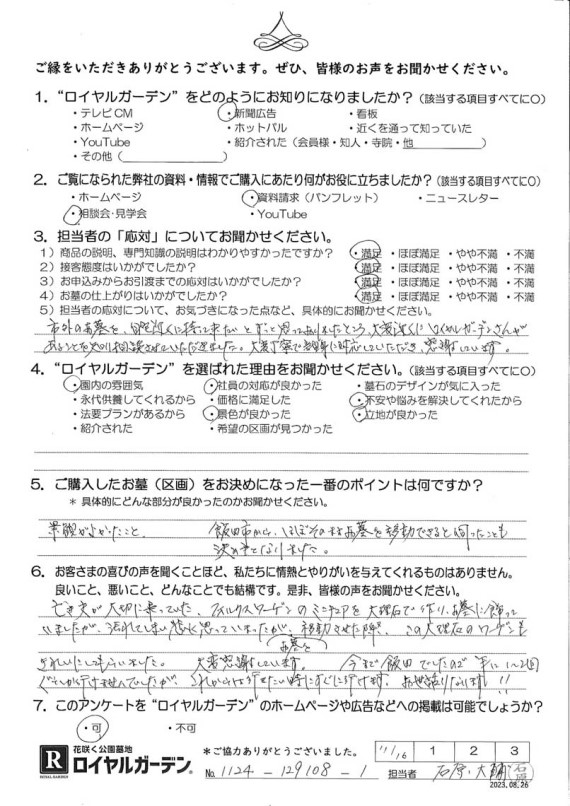 ご縁をいただきありがとうございます。ぜひ、皆様のお声をお聞かせください。
1. “ロイヤルガーデン”をどのようにお知りになりましたか？(該当する項目すべてに○)
・テレビCM ・新聞広告 ・看板
・ホームページ ・ホットパル ・近くを通って知っていた
・YouTube ・紹介された（会員様・知人・寺院・他　　　　）
・その他（　　　　　　　）
2. ご覧になられた弊社の資料・情報でご購入にあたり何がお役に立ちましたか？(該当する項目すべてに○)
・ホームページ ・資料請求（パンフレット） ・ニュースレター
・相談会・見学会 ・YouTube
3. 担当者の「応対」についてお聞かせください。
1）商品の説明、専門知識の説明はわかりやすかったですか？ ・満足 ・ほぼ満足 ・やや不満 ・不満
2）接客態度はいかがでしたか？ ・満足 ・ほぼ満足 ・やや不満 ・不満
3）お申込みからお引渡までの応対はいかがでしたか？ ・満足 ・ほぼ満足 ・やや不満 ・不満
4）お墓の仕上がりはいかがでしたか？ ・満足 ・ほぼ満足 ・やや不満 ・不満
5）担当者の応対について、お気づきになった点など、具体的にお聞かせください。
市外のお墓を、自宅近くに持って来たいとずっと思っておりましたところ、大変近くにロイヤルガーデンさんが
あることを知り相談させていただきました。大変丁寧で対応していただき、感謝しています。
4. “ロイヤルガーデン”を選ばれた理由をお聞かせください。(該当する項目すべてに○)
・園内の雰囲気 ・社員の対応が良かった ・墓石のデザインが気に入った
・永代供養してくれるから ・価格に満足した ・不安や悩みを解決してくれたから
・法要プランがあるから ・景色が良かった ・立地が良かった
・紹介された ・希望の区画が見つかった
5. ご購入したお墓（区画）をお決めになった一番のポイントは何ですか？
＊具体的にどんな部分が良かったのかお聞かせください。
景観がよかったこと、 飯田市から、ほぼそのままお墓を移動できると伺ったことも
決め手となりました。
6. お客さまの喜びの声を聞くことほど、私たちに情熱とやりがいを与えてくれるものはありません。
良いこと、悪いこと、どんなことでも結構です。是非、皆様の声をお聞かせください。
亡き夫が大切に乗っていた、フォルクスワーゲンのミニチュアを大理石で作り、お墓に飾って
いましたが、汚れてしまい悲しく思っていましたが、移動させた際、この大理石のワーゲンも
お墓を
きれいにしてもらいました。大変感謝しています。 今まで飯田でしたので年に1〜2回
ぐらいしか行けませんでしたが、これからは行きたい時にすぐに行けます。
7. このアンケートを“ロイヤルガーデン”のホームページや広告などへの掲載は可能でしょうか？
・可 ・不可
R ROYAL GARDEN
花咲く公園墓地
ロイヤルガーデン®
＊ご協力ありがとうございました。
No. 1124-129108-1
11/16 1 2 3
担当者 石原・大
2023.08.26